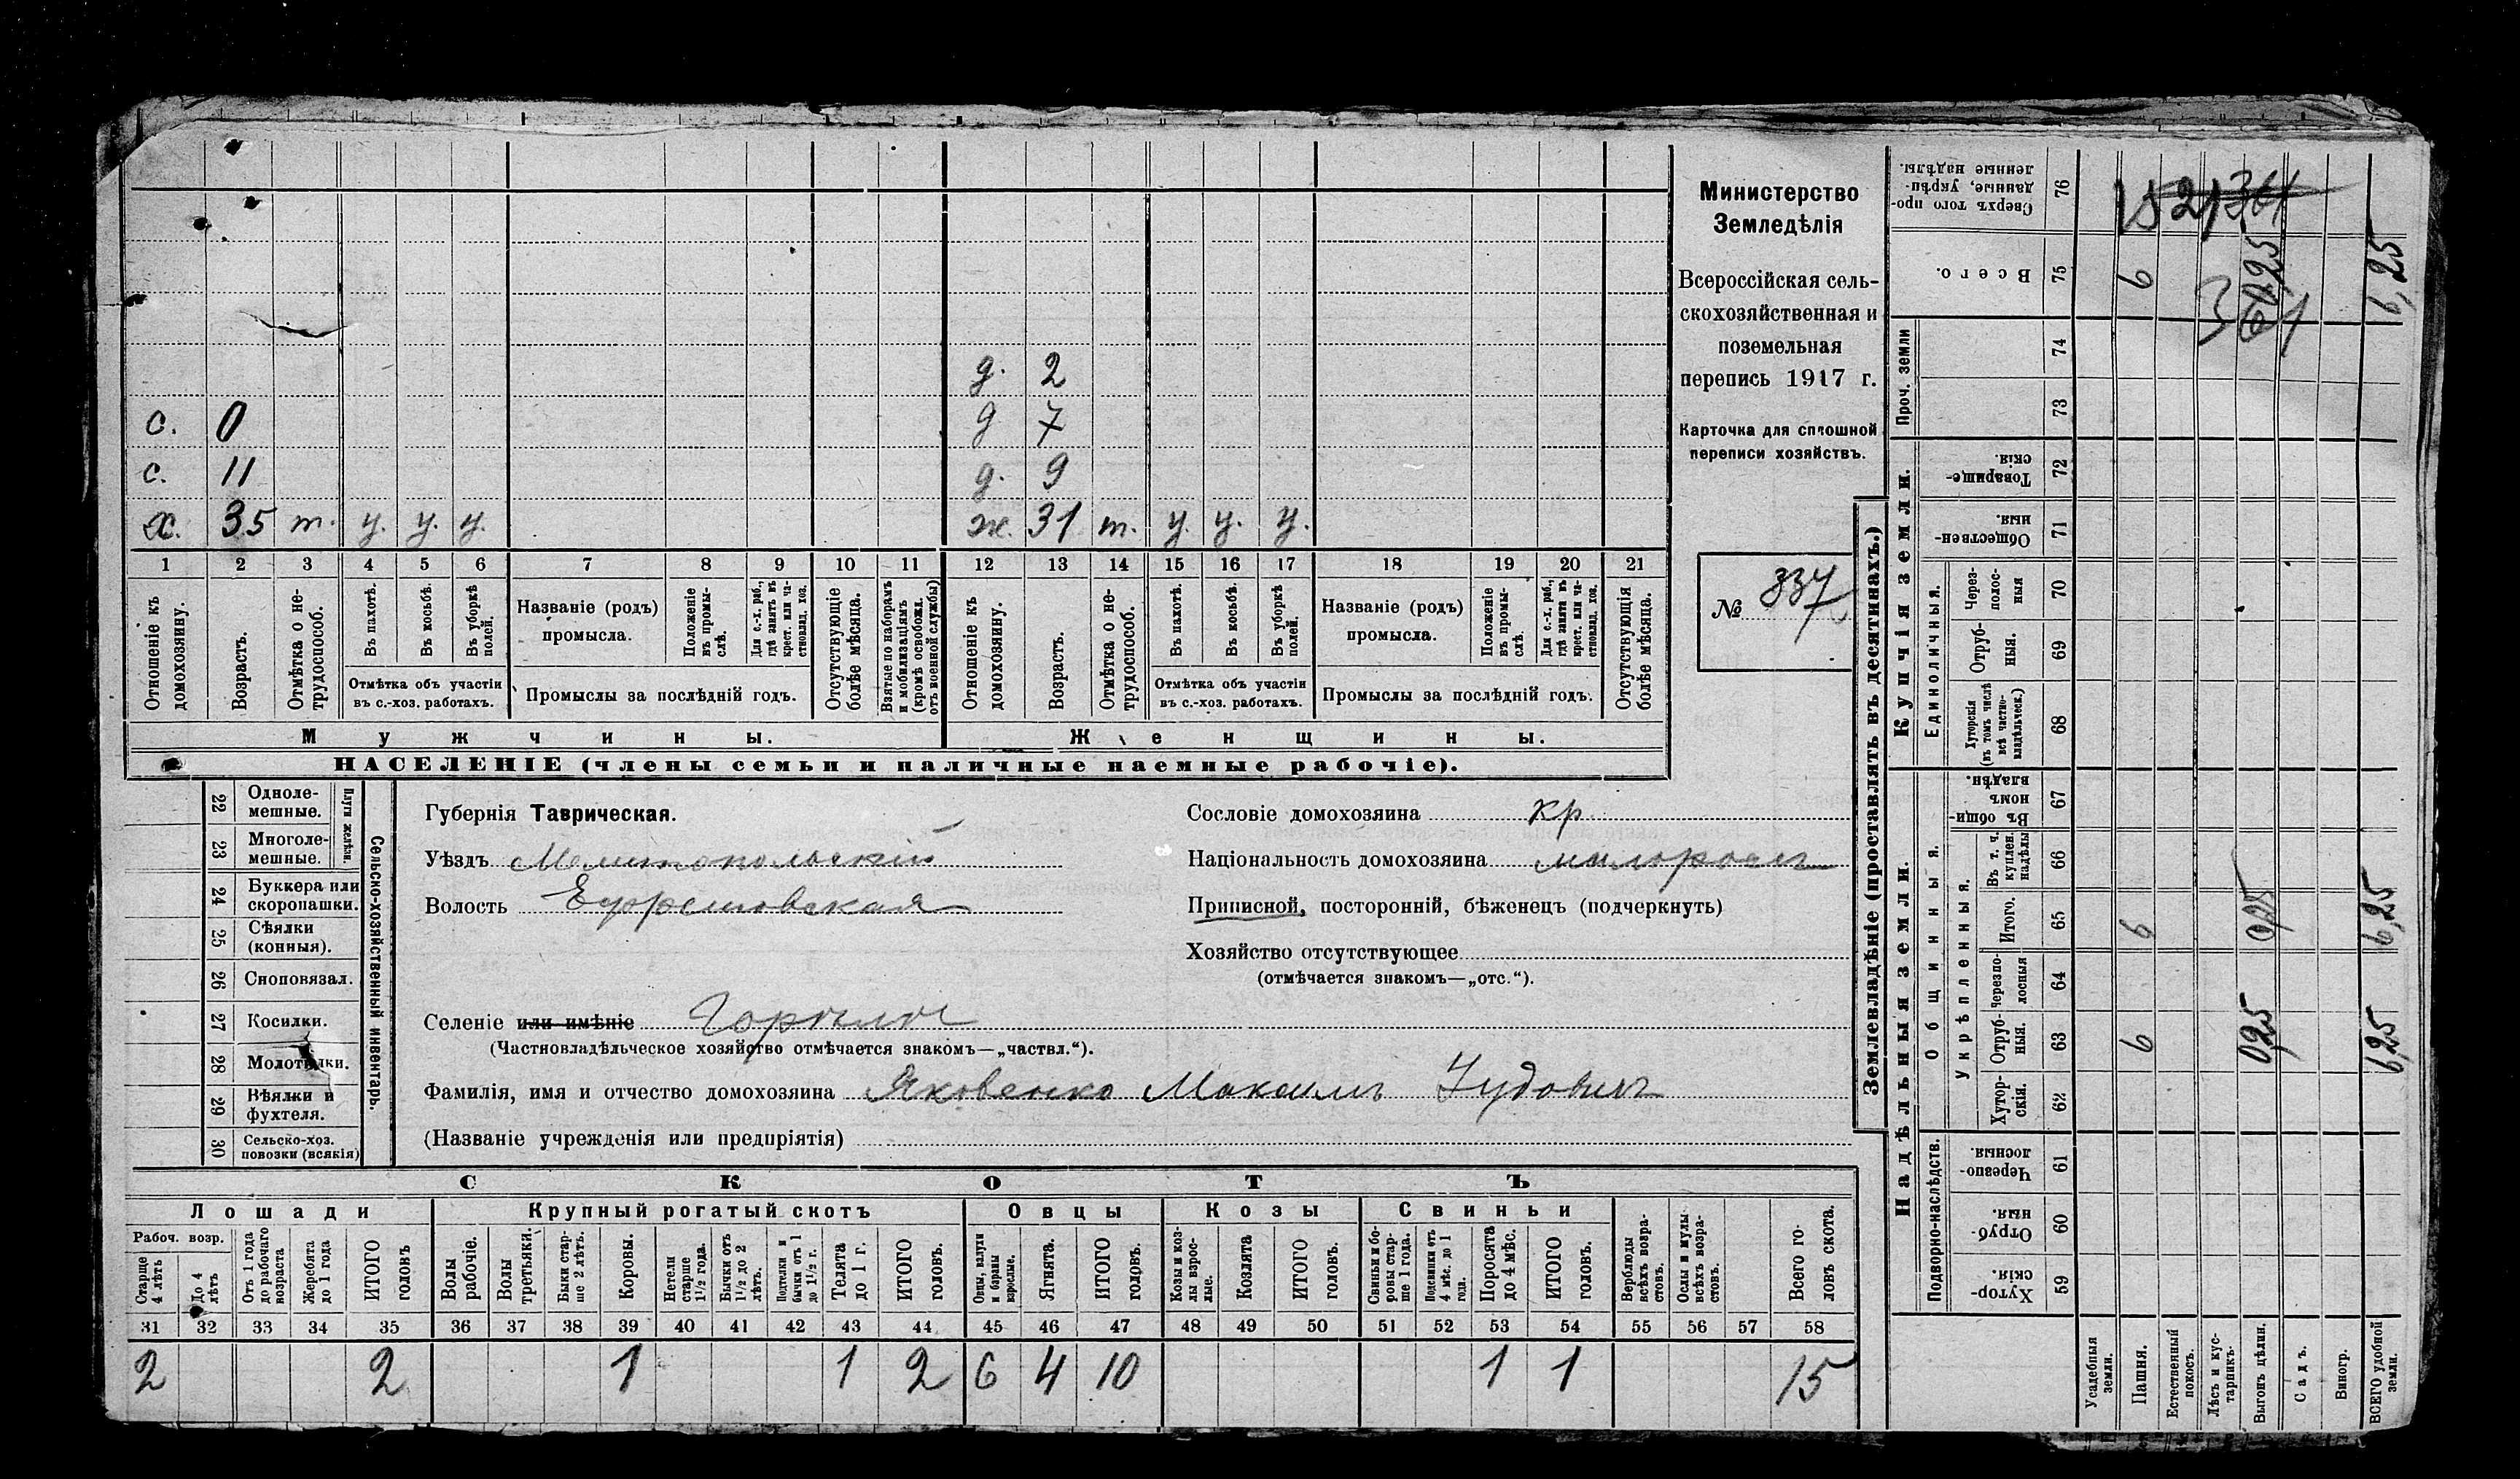 д. 2
с. 0 д 7
с. 11 д. 9
х. 35 т. у. у. у. ж. 31 т. у. у. у.
1 2 3 4 5 6 7 8 9 10 11 12 13 14 15 16 17 18 19 20 21
Отношеніе къ домохозяину.
Возрастъ.
Отмѣтка о нетрудоспособ.
Въ пахотѣ.
Въ косьбѣ.
Въ уборкѣ полей.
Отмѣтка объ участіи
въ с.-хоз. работахъ.
Названіе (родъ)
промысла.
Положеніе въ промыслѣ.
Для с.-х. раб., гдѣ занятъ въ крест. или частновлад. хоз.
Промыслы за послѣдній годъ.
Отсутствующіе болѣе мѣсяца.
Взятые по наборамъ и мобилизаціямъ (кромѣ освобожд. отъ военной службы)
Отношеніе къ домохозяину.
Возрастъ.
Отмѣтка о нетрудоспособ.
Въ пахотѣ.
Въ косьбѣ.
Въ уборкѣ полей.
Отмѣтка объ участіи
въ с.-хоз. работахъ.
Названіе (родъ)
промысла.
Положеніе въ промыслѣ.
Для с.-х. раб., гдѣ занятъ въ крест. или частновлад. хоз.
Промыслы за послѣдній годъ.
Отсутствующія болѣе мѣсяца.
Мужчины. Женщины.
НАСЕЛЕНІЕ (члены семьи и наличные наемные рабочіе).
Министерство
Земледѣлія
Всероссійская сель-
скохозяйственная и
поземельная
перепись 1917 г.
Карточка для сплошной
переписи хозяйствъ.
№ 337
22 Одноле-
мешные.
23 Многоле-
мешные.
Плуги желѣзн.
24 Буккера или
скоропашки.
25 Сѣялки
(конныя).
26 Сноповязал.
27 Косилки.
28 Молотилки.
29 Вѣялки и
фухтеля.
30 Сельско-хоз.
повозки (всякія)
Сельско-хозяйственный инвентарь.
Губернія Таврическая.
Уѣздъ Мелитопольскій
Волость Ефремовская
Селеніе или имѣніе
(Частновладѣльческое хозяйство отмѣчается знакомъ—„частвл.“).
Фамилія, имя и отчество домохозяина Яковенко Максимъ
(Названіе учрежденія или предпріятія)
Сословіе домохозяина кр.
Національность домохозяина малороссъ
Приписной, посторонній, бѣженецъ (подчеркнуть)
Хозяйство отсутствующее
(отмѣчается знакомъ—„отс.“).
СКОТЪ
Лошади Крупный рогатый скотъ Овцы Козы Свиньи
Рабоч. возр.
Старше 4 лѣтъ
До 4 лѣтъ
Отъ 1 года до рабочаго возраста
Жеребята до 1 года
ИТОГО головъ
Волы рабочіе.
Волы третьяки.
Быки старше 2 лѣтъ.
Коровы.
Нетели старше 1½ года.
Бычки отъ 1½ до 2 лѣтъ.
Подтелки и бычки отъ 1 до 1½ г.
Телята до 1 г.
ИТОГО головъ.
Овцы, валухи и бараны взрослые.
Ягнята.
ИТОГО головъ.
Козы и козлы взрослые.
Козлята
ИТОГО головъ.
Свиньи и боровы старше 1 года.
Подсвинки отъ 4 мѣс. до 1 года.
Поросята до 4 мѣс.
ИТОГО головъ.
Верблюды всѣхъ возрастовъ.
Ослы и мулы всѣхъ возрастовъ.
Всего головъ скота.
31 32 33 34 35 36 37 38 39 40 41 42 43 44 45 46 47 48 49 50 51 52 53 54 55 56 57 58
2 2 1 1 2 6 4 10 1 1 15
Землевладѣніе (проставлять въ десятинахъ.)
Сверхъ того проданные, укрѣпленные надѣлы. 76
Всего. 75 6 6,25
Проч. земли 74
73
Купчія земли.
Товарищескія. 72
Общественныя. 71
Единоличныя.
Черезполосныя 70
Отрубныя. 69
Хуторскія (въ томъ числѣ всѣ частновладѣльческ.) 68
Надѣльныя земли.
Общинныя.
Въ общинномъ владѣн. 67
Укрѣпленныя.
Въ т. ч. куплен. надѣлы 66
Итого. 65 6 0,25 6,25
Черезполосныя 64
Отрубныя. 63 6 025 6,25
Хуторскія. 62
Подворно-наслѣдств.
Черезполосныя. 61
Отрубныя. 60
Хуторскія. 59
Усадебныя земли.
Пашня.
Естественный покосъ.
Лѣсъ и кустарникъ.
Выгонъ цѣлин.
Садъ.
Виногр.
ВСЕГО удобной земли.